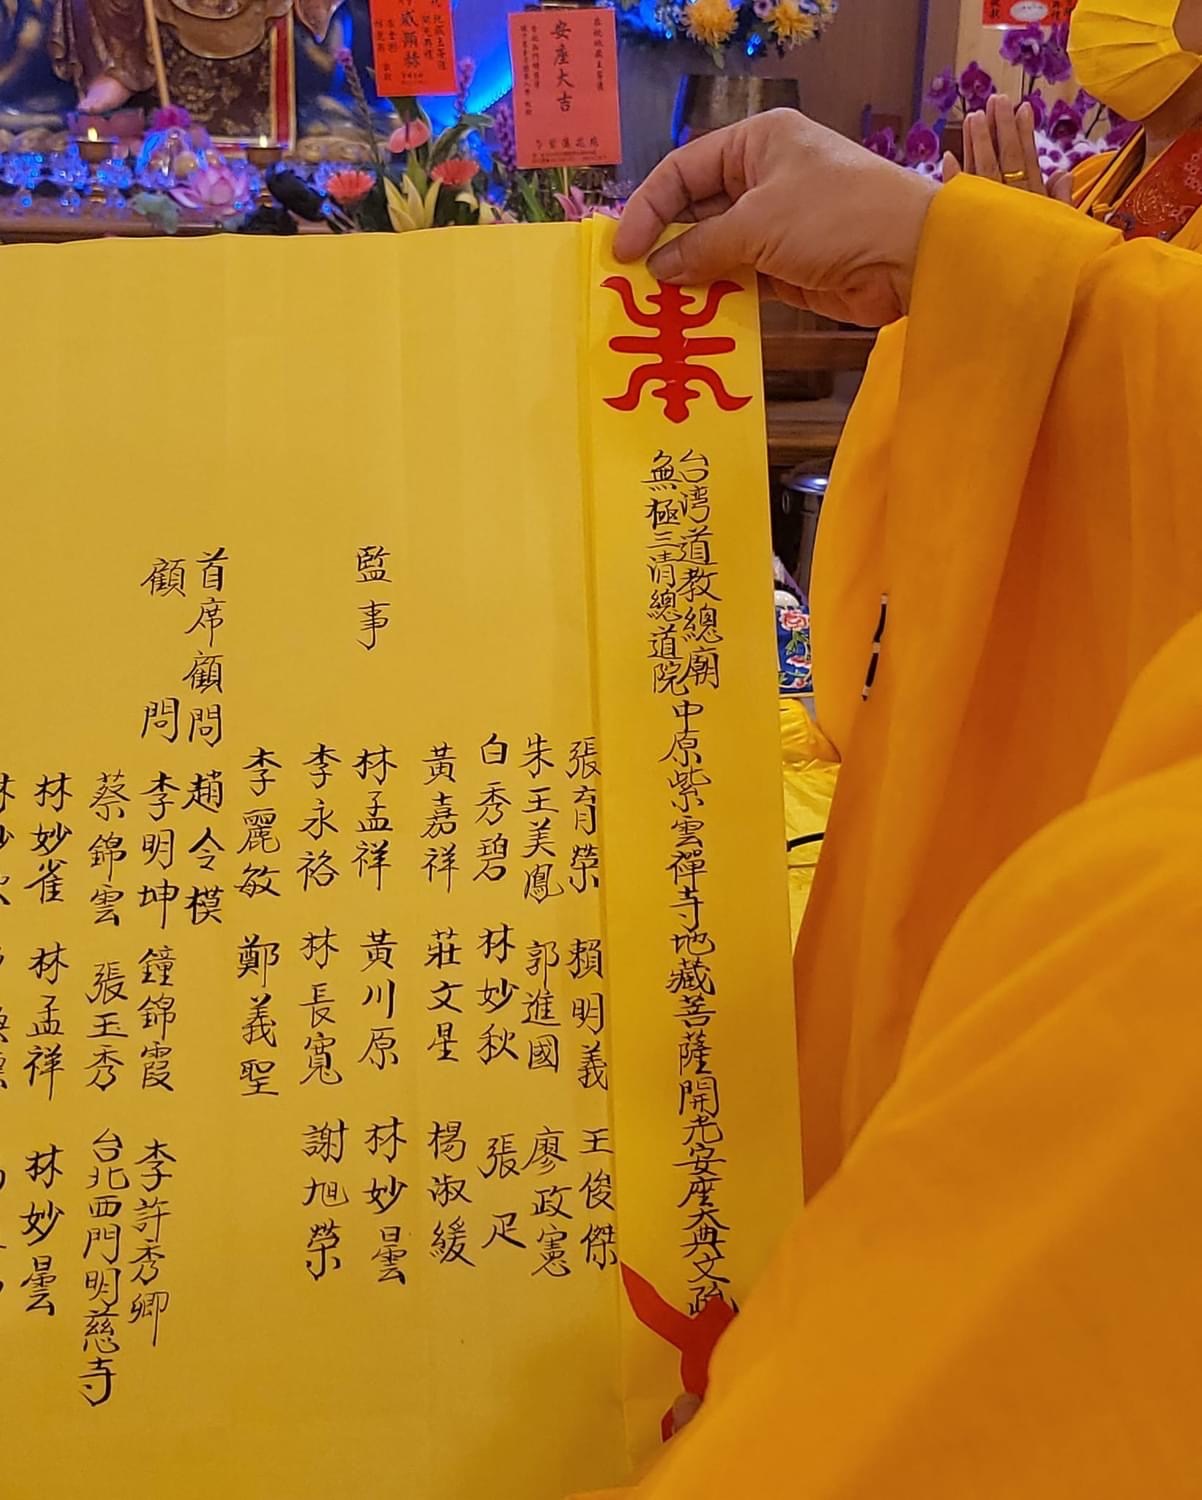 安座大吉
台湾道教總廟
無極三清總道院
中原紫雲禪寺地藏菩薩開光安座大典文疏
張育榮 賴明義 王俊傑
朱王美鳳 郭進國 廖政憲
白秀碧 林妙秋 張足
黃嘉祥 莊文星 楊淑緩
監事 林孟祥 黃川原 林妙曇
李永裕 林長寬 謝旭榮
李麗敏 鄭義聖
首席顧問 趙令模
顧問 李明坤 鐘錦霞 李許秀卿
蔡錦雲 張玉秀 台北西門明慈寺
林妙雀 林孟祥 林妙曇